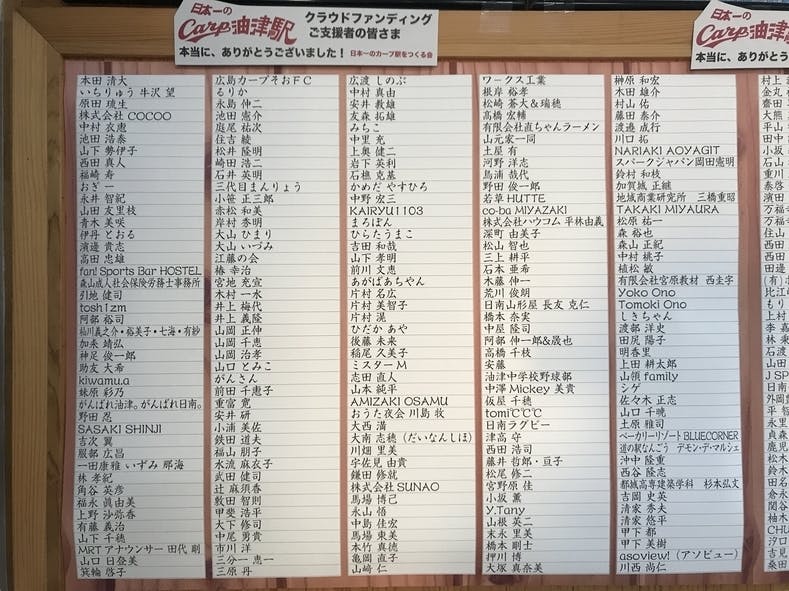 日本一の
Carp油津駅
クラウドファンディング
ご支援者の皆さま
本当に、ありがとうございました！
日本一のカープ駅をつくる会
日本一の
Carp油津
本当に、ありがと
本田 清大
いちりゅう 牛沢 望
原田 琉生
株式会社 COCOO
中村 衣恵
池田 浩泰
山下 勢伊子
西田 真人
福崎 寿
おぎー
永井 智紀
山田 友里枝
青木 美咲
伊丹 とおる
濱邊 貴志
高田 忠雄
fan! Sports Bar HOSTEL
森山成人社会保険労務士事務所
引地 健司
tosh1zm
阿部 裕司
稲川義之介・裕美子・七海・有紗
加来 靖弘
神足 俊一郎
助友 大希
kiwamu.a
妹原 彩乃
がんばれ油津。がんばれ日南。
野田 忍
SASAKI SHINJI
吉次 翼
服部 広昌
一田康雅 いずみ 那海
林 孝紀
角谷 英彦
福永 眞由美
上野 沙弥香
有藤 義治
山下 千穂
MRT アナウンサー 田代 剛
山口 日登美
箕輪 啓子
広島カープそおＦＣ
るりか
永島 伸二
池田 憲介
庭尾 祐次
住吉 綾
松井 隆明
崎田 浩二
石井 英明
三代目まんりょう
小笹 正三郎
赤松 和美
岸村 秀明
大山 ひまり
大山 いづみ
江藤の会
椿 幸治
宮地 充宣
木村 一水
井上 梅代
井上 義隆
山岡 正伸
山岡 千恵
山岡 治孝
山口 とみこ
がんさん
前田 千恵子
重富 寛
安井 研
小浦 美佐
鉄田 道夫
福山 朋子
水流 麻衣子
武田 健司
辻 麻須香
敷田 智則
甲斐 浩平
大下 修司
中尾 勇貴
市川 洋
三分一 恵一
三原 丹
広渡 しのぶ
中村 真由
安井 教雄
友森 拓雄
みちこ
中里 充
上奥 健二
岩下 英利
石樵 克基
かめだ やすひろ
中野 宏三
KAIRYU1103
まろぽん
ひらたうまこ
吉田 和哉
山下 孝明
前川 文恵
あがぱあちやん
片村 名広
片村 美智子
片村 滉
ひだか あや
後藤 未来
稲尾 久美子
ミスターＭ
志田 直人
山本 純平
AMIZAKI OSAMU
おうた夜会 川島 牧
大西 満
大南 志穂（だいなんしほ）
川畑 里美
宇佐見 由貴
鎌田 修就
株式会社 SUNAO
馬場 博己
永山 悟
中島 佳宏
馬場 東美
本竹 真徳
亀岡 直子
山﨑 仁
ワークス工業
根岸 裕孝
松崎 蒼大＆瑞穂
高橋 宏輔
有限会社直ちゃんラーメン
山元家一同
土屋 有
河野 洋志
馬浦 哉代
野田 俊一郎
若草 HUTTE
co-ba MIYAZAKI
株式会社ハウコム 平林由義
深町 由美子
松山 智也
三上 耕平
石本 亜希
木藤 伸一
荒川 俊朗
日南山形屋 長友 克仁
橋本 奈実
中屋 隆司
阿部 伸一郎＆晟也
高橋 千枝
安藤
油津中学校野球部
中澤 Mickey 美貴
仮屋 千穂
tomi℃℃℃
日南ラグビー
津高 守
西田 浩司
藤井 哲郎・亘子
松尾 修二
宮野原 佳
小坂 薫
y.Tany
山根 英二
末永 里美
橋本 剛士
押川 博
大塚 真奈美
榊原 和宏
木田 雄介
村山 佑
藤田 泰介
渡邊 成行
川口 拓
NARIAKI AOYAGIT
スパークジャパン岡田憲明
鈴村 和枝
加賀城 正継
地域商業研究所 三橋重昭
TAKAKI MIYAURA
松原 祐一
森 裕也
森山 正紀
中村 桃子
植松 敏
有限会社宮原教材 西圭宇
Yoko Ono
Tomoki Ono
しきちゃん
渡部 洋史
田尻 陽子
明香里
上田 耕太郎
山領 family
シゲ
佐々木 正志
山口 千暁
土原 雅司
ベーカリーリゾートBLUECORNER
道の駅なんごう デモン・デ・マルシェ
沖中 隆重
西谷 隆志
都城高専建築学科 杉本弘文
吉岡 史英
清家 秀夫
清家 悠平
甲下 都
甲下 美樹
asoview!（アソビュー）
川西 尚仁